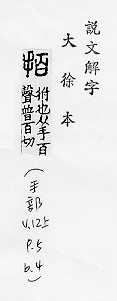 說文解字
大徐本
拊也从手百
聲普百切
(手部
V.12上
P.5
b.4)